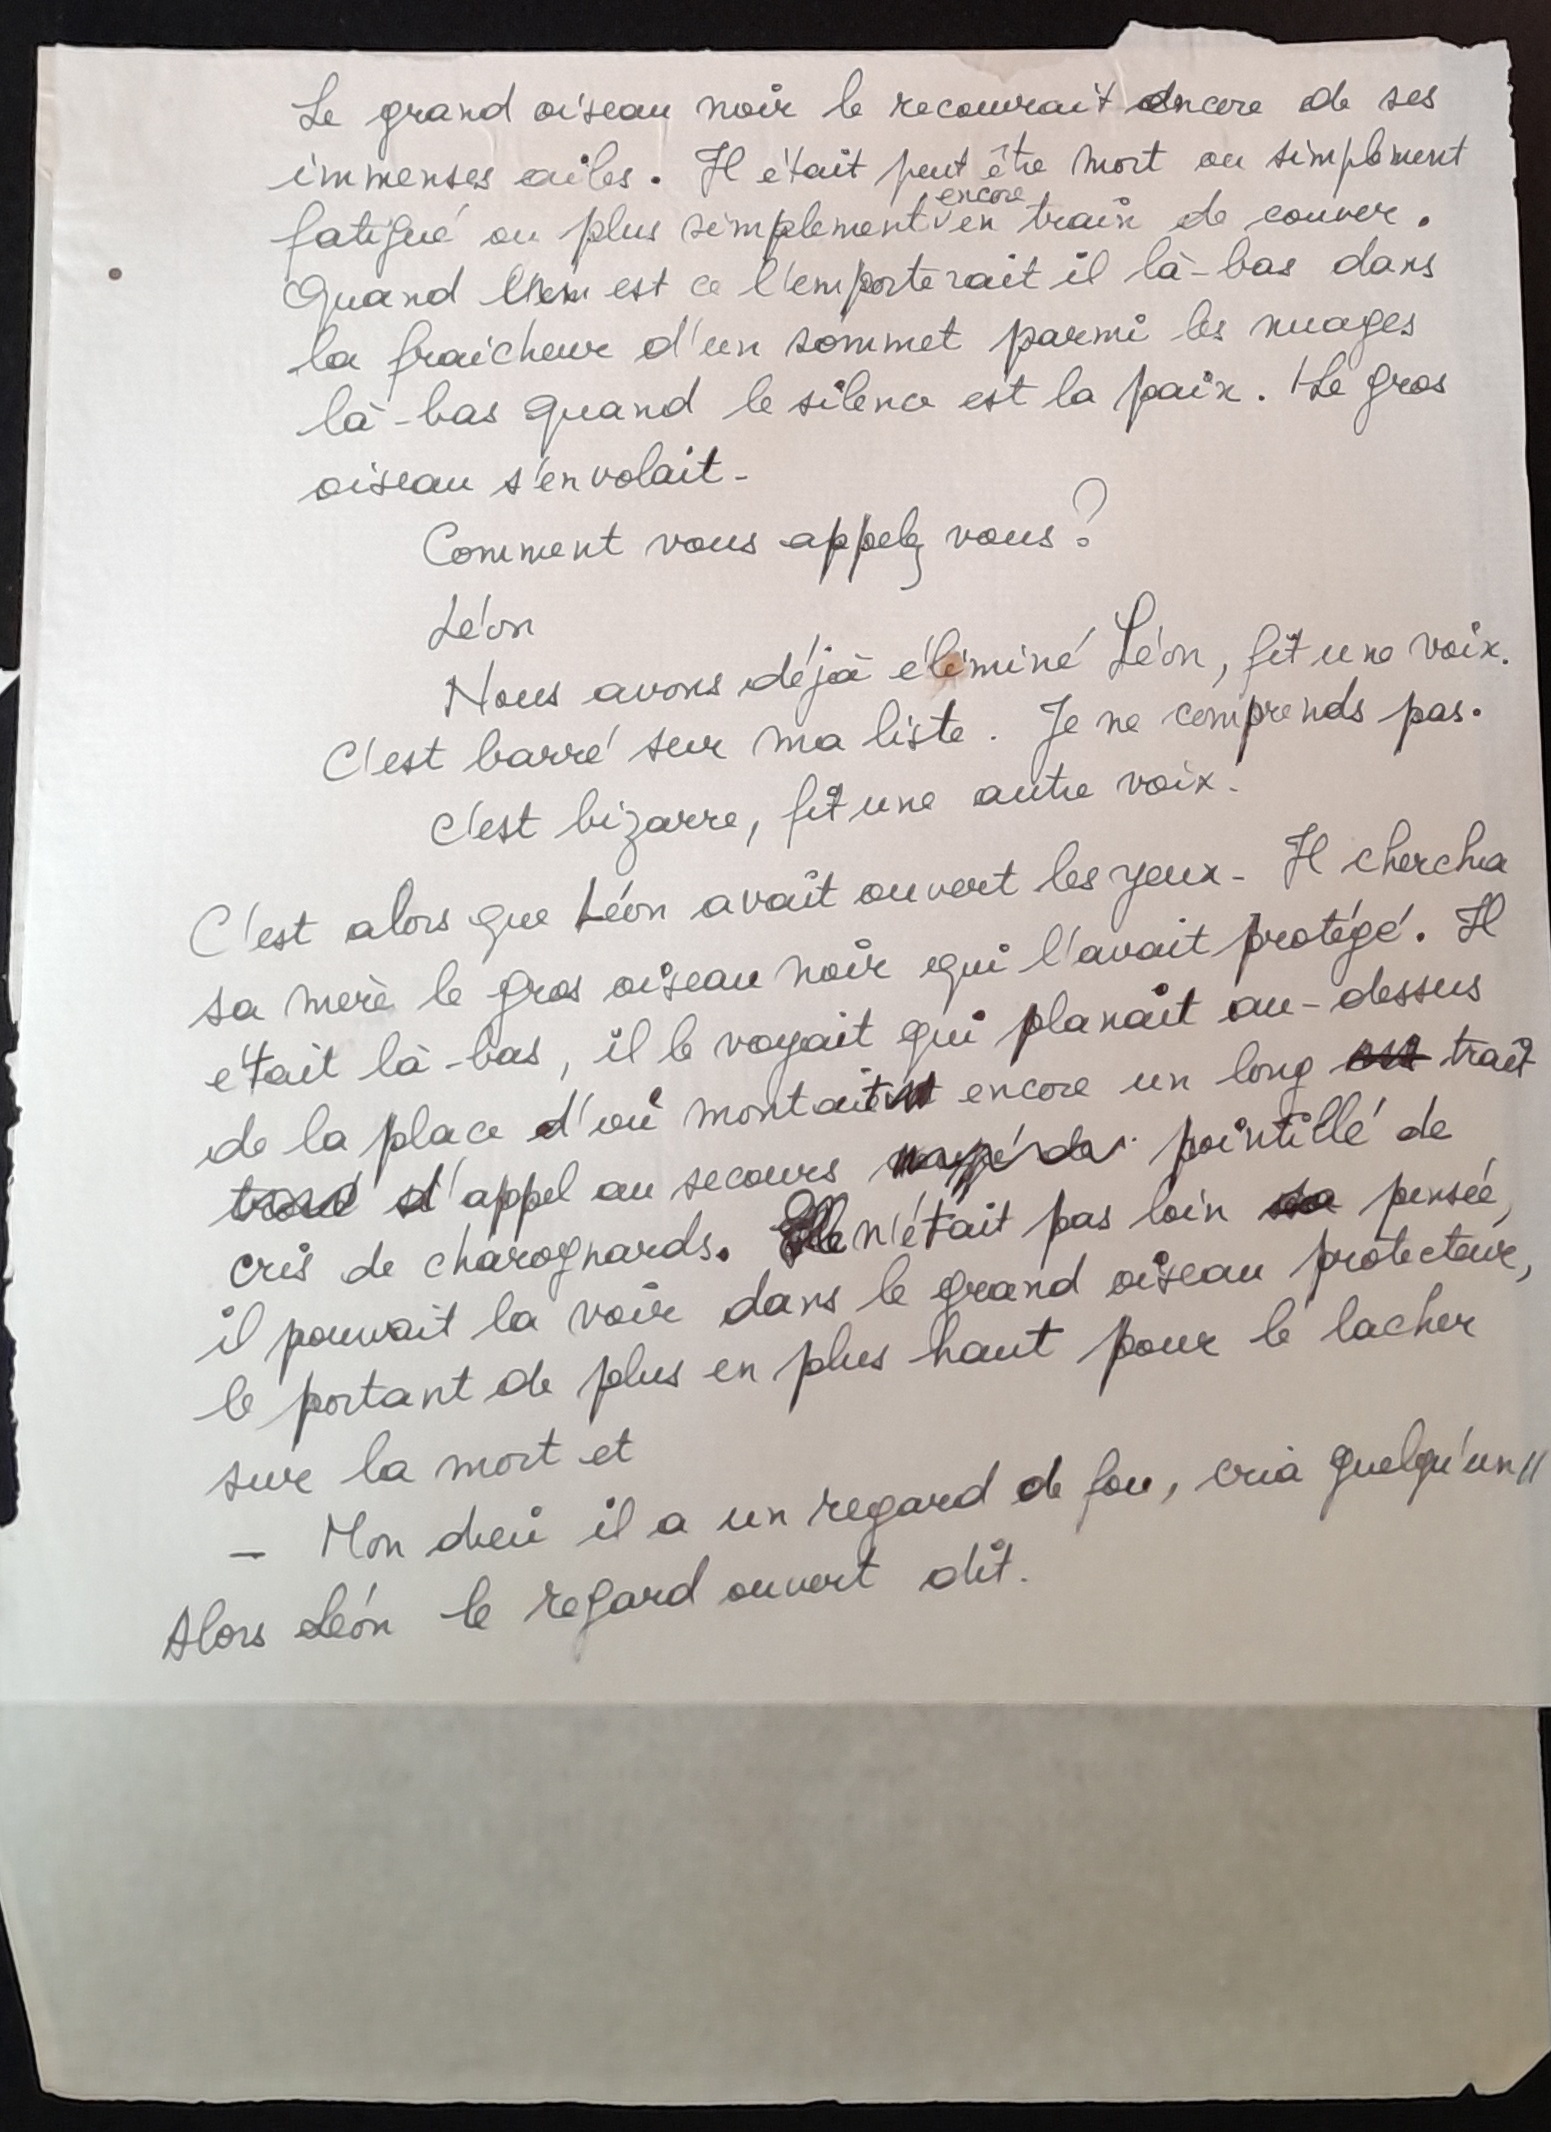 Le grand oiseau noir le recouvrait encore de ses
immenses ailes. Il était peut être mort ou simplement
fatigué ou plus simplement encore en train de couver.
Quand est ce l'emporterait il là-bas dans
la fraicheur d'un sommet parmi les nuages
là-bas quand le silence est la paix. Le gros
oiseau s'envolait -
Comment vous appelez vous?
Léon
Nous avons déjà éliminé Léon, fit une voix.
C'est barré sur ma liste. Je ne comprends pas.
C'est bizarre, fit une autre voix.
C'est alors que Léon avait ouvert les yeux - Il chercha
sa merè le gros oiseau noir qui l'avait protégé. Il
était là-bas, il le voyait qui planait au-dessus
de la place d'où montait encore un long trait
d'appel au secours pointillé de
cris de charognards. Elle n'était pas loin sa pensée,
il pouvait la voir dans le grand oiseau protecteur,
le portant de plus en plus haut pour le lacher
sur la mort et
— Mon dieu il a un regard de fou, cria quelqu'un
Alors Léon le regard ouvert dit.